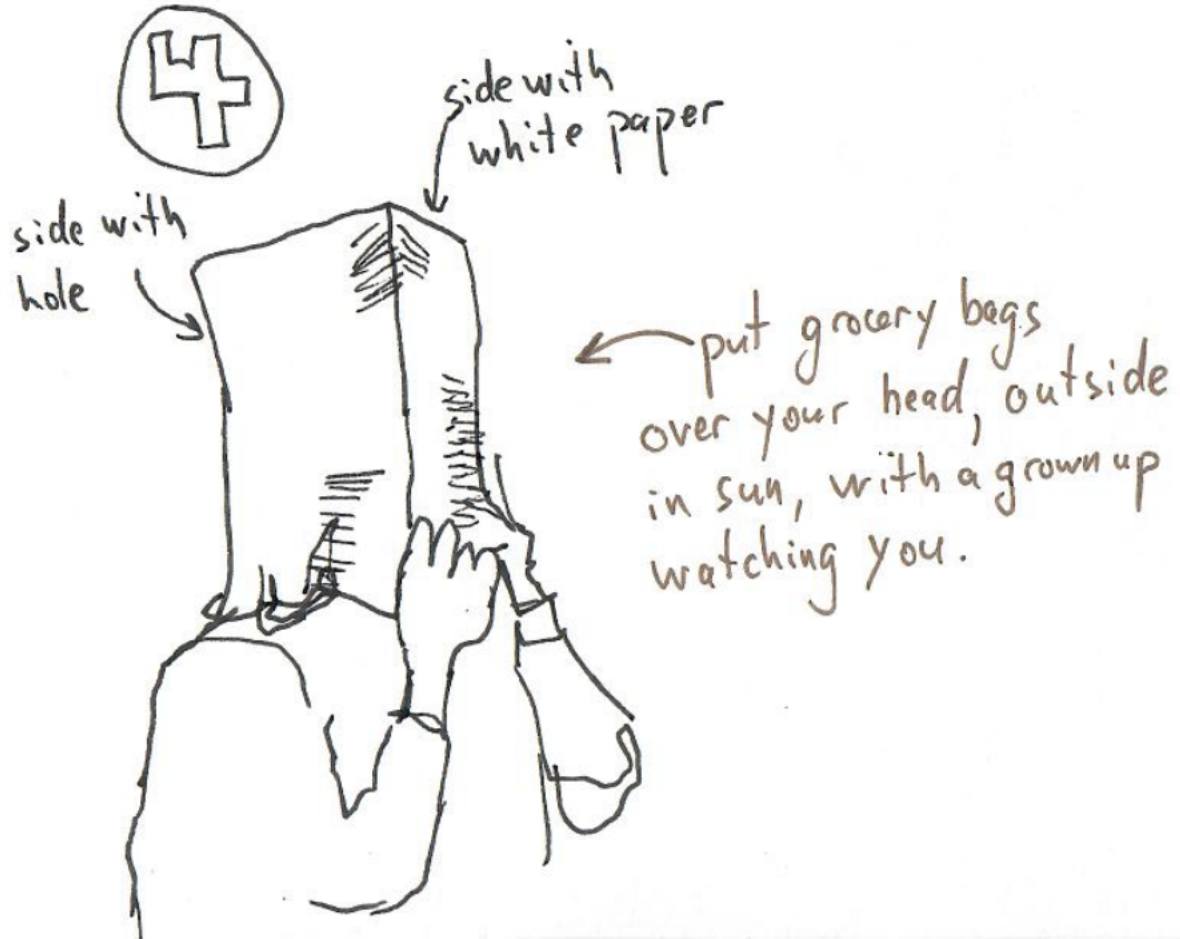 4
side with
white paper
side with
hole
put grocery bags
over your head, outside
in sun, with a grown up
watching you.